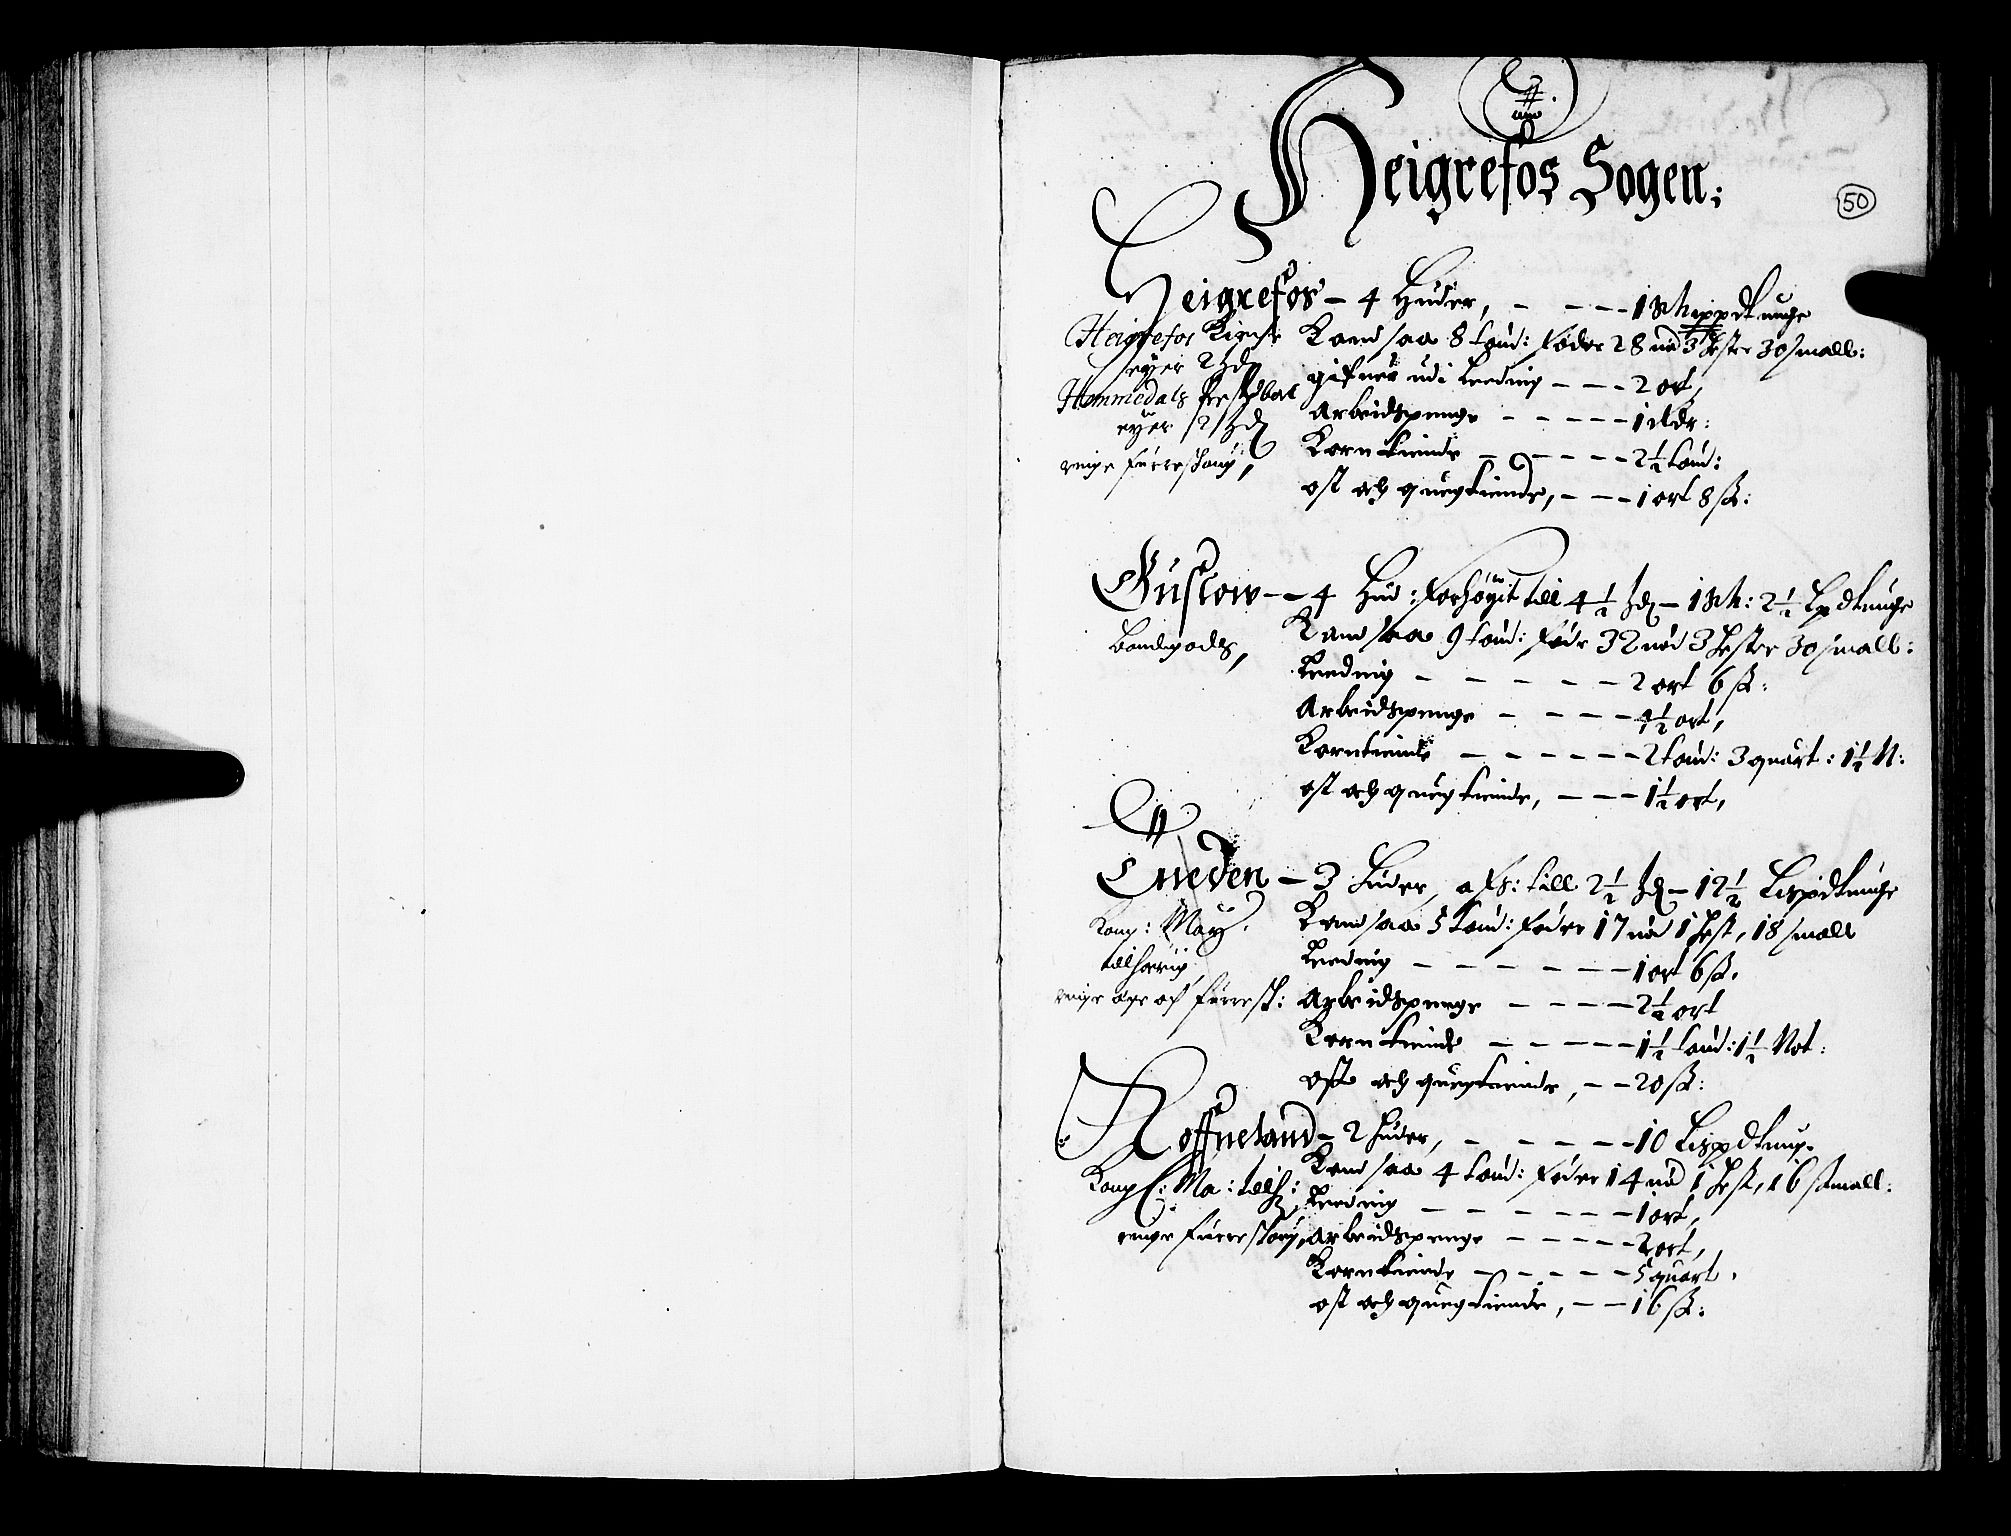 Heigrefos Sogen;
50
Heigrefos — 4 Huder, — — — 1 Skippdtunge
Heigrefos Kirche
eyer 2 hd
Hemmedals prestebol
eyer 2 hd
ringe furreskoug,
Kand saa 8 tønd:føder 28 nød 3 hester 30 small:
gifues udi Leeding — — — 2 ort,
Arbeidspenge — — — — — 1 rdr:
Korn tiende — — — — — 2 1/2 tønd:
ost och quegtiende, — — — 1 ort 8 ß:
Gustow — 4 Hud: forhøyit till 4 1/2 hd — 1 Sk: 2 1/2 Lpdtunge
Bondegods,
Kand saa 9 tønd: føder 32 nød 3 hester 30 small:
Leeding — — — — — — 2 ort 6 ß:
Arbeidspenge — — — — 4 1/2 ort,
Korntiende — — — — — — 2 tønd: 3 quart: 1 1/2 N:
ost och quegtiende, — — — 1 1/2 ort,
Eneden — 3 huder, aff: till 2 1/2 hd — 12 1/2 Lispdtunge
Kong: May.
tilhørig,
ringe øxe och furresk:
Kand saa 5 tønd: føder 17 nød 1 hest, 18 small
Leeding — — — — — — 1 ort 6 ß.
Arbeidspenge — — — — 2 1/2 ort
Korn tiende — — — — — 1 1/2 tønd: 1 1/2 Not:
ost och quegtiende, — — 20 ß:
Roffneland — 2 huder, — — — — — 10 Lisppdtung.
Kongl: Ma: tilh:
ringe furreskoug,
Kand saa 4 tønd: føder 14 nød 1 hest, 16 small:
Leeding — — — — — — 1 ort,
Arbeidspenge — — — — — 2 ort,
Korntiende — — — — — 5 quart.
ost och quegtiende, — — 16 ß: